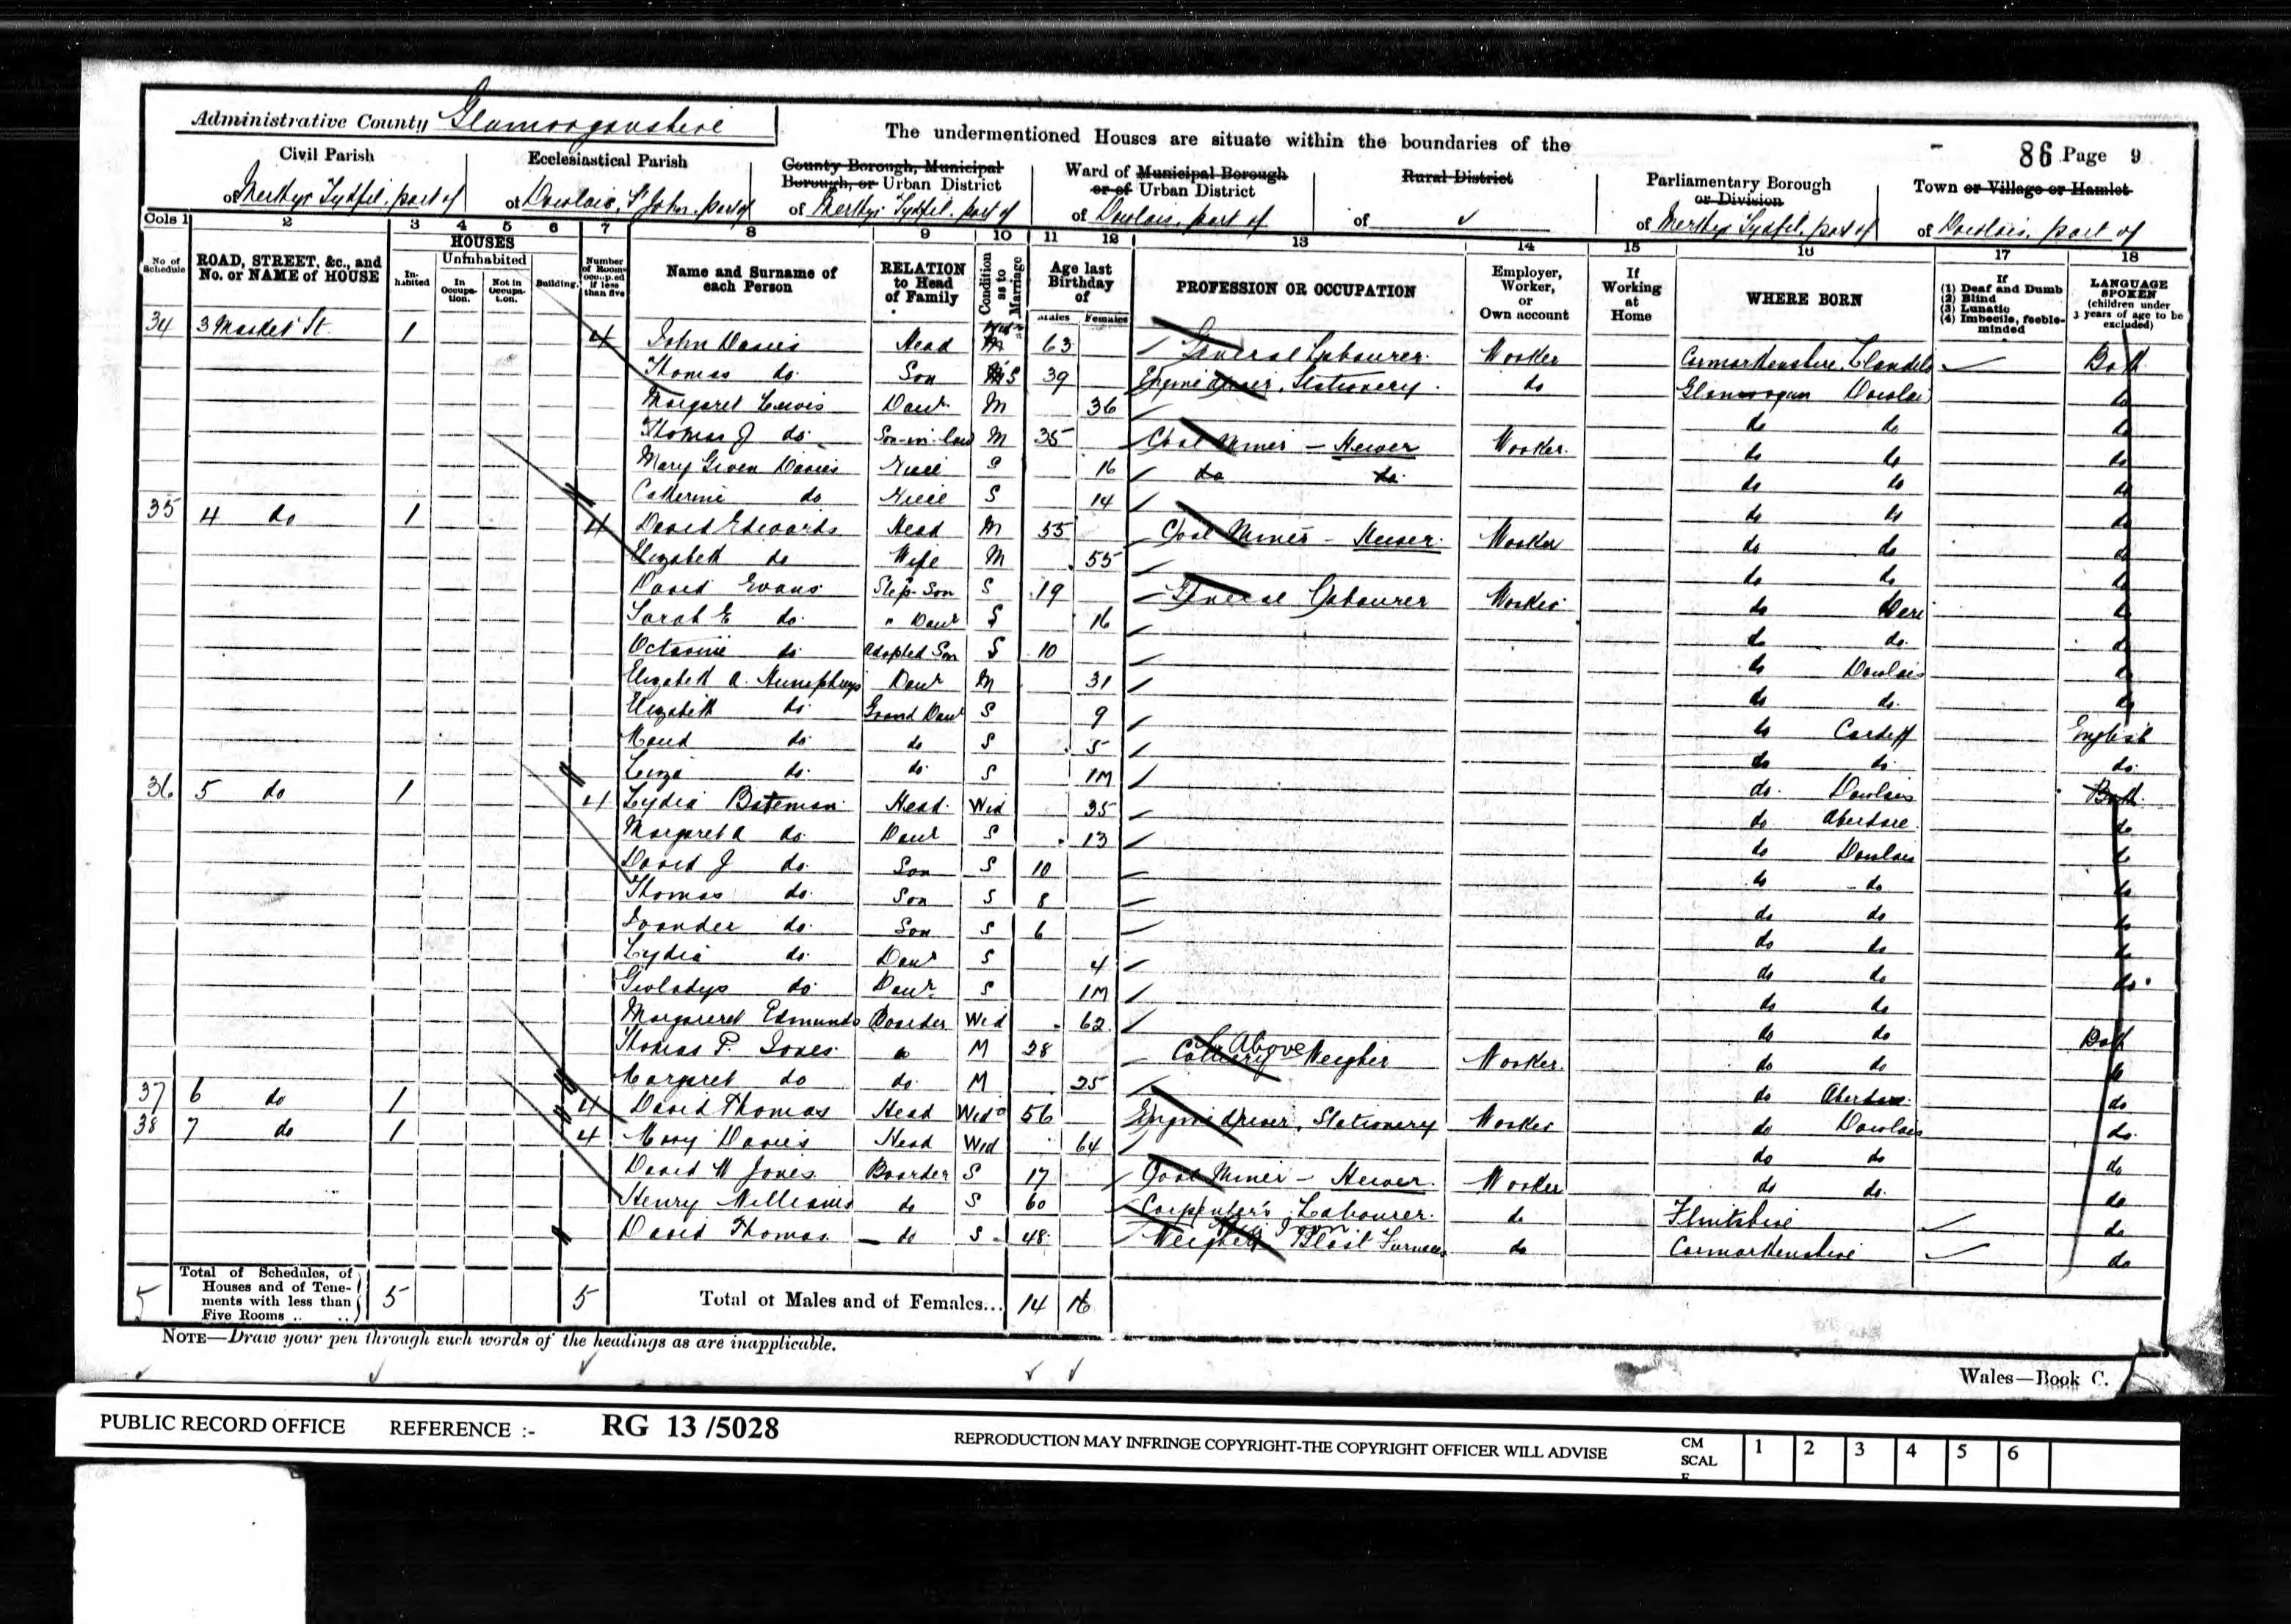 Administrative County Glamorganshire
The undermentioned Houses are situate within the boundaries of the
86 Page 9
Civil Parish
of Merthyr Tydfil, part of
Ecclesiastical Parish
of Dowlais, St John, part of
County Borough, Municipal Borough, or Urban District
of Merthyr Tydfil, part of
Ward of Municipal Borough or of Urban District
of Dowlais, part of
Rural District
of
Parliamentary Borough or Division
of Merthyr Tydfil, part of
Town or Village or Hamlet
of Dowlais, part of
Cols 1 2 3 4 5 6 7 8 9 10 11 12 13 14 15 16 17 18
No of Schedule
ROAD, STREET, &c., and No. or NAME of HOUSE
HOUSES
In-habited
Uninhabited
In Occupa-tion.
Not in Occupa-tion.
Building.
Number of Rooms occupied if less than five
Name and Surname of each Person
RELATION to Head of Family
Condition as to Marriage
Age last Birthday of
Males Females
PROFESSION OR OCCUPATION
Employer, Worker, or Own account
If Working at Home
WHERE BORN
If
(1) Deaf and Dumb
(2) Blind
(3) Lunatic
(4) Imbecile, feeble-minded
LANGUAGE SPOKEN
(children under 3 years of age to be excluded)
34 3 Market St. 1 4 John Davies Head 63 General Labourer. Worker Carmarthenshire, Llandilo Both
Thomas do. Son S 39 Engine driver, Stationery. do Glamorgan Dowlais do
Margaret Lewis Daur M 36 do do do
Thomas J do. Son-in-law M 35 Coal Miner - Hewer Worker. do do do
Mary Gwen Davies Niece S 16 do do. do do do
Catherine do Niece S 14 do do do
35 4 do 1 4 David Edwards Head M 55 Coal Miner - Hewer. Worker do do do
Elizabeth do Wife M 55 do do do
David Evans Step-Son S 19 General Labourer Worker do Deri do
Sarah E do. " Daur S 16 do do. do
do. Adopted Son S 10 do Dowlais do
Elizabeth A. Humphreys Daur M 31 do do. do
Elizabeth do Grand Daur S 9 do Cardiff English
Maud do. do S 5 do do. do.
do. do. S 1M do. Dowlais Both
36 5 do 1 4 Lydia Bateman Head. Wid 35 do Aberdare. do
Margaret A do. Daur S 13 do Dowlais do
David J do. Son S 10 do do do
Thomas do. Son S 8 do do do
do. Son S 6 do do do
Lydia do. Daur S 4 do do do.
Gwladys do. Daur. S 1M do do
Margaret Edmunds Boarder Wid 62 do do Both
Thomas P. Jones. do M 28 Colliery Above Weigher Worker. do do do
Margaret do do. M 25 do Aberdare. do
37 6 do 1 4 David Thomas Head Widr 56 Engine driver, Stationery Worker do Dowlais do.
38 7 do 1 4 Mary Davies Head Wid 64 do do do
David W Jones. Boarder S 17 Coal Miner - Hewer. Worker do do. do
Henry Williams do S 60 Carpenter's Labourer. do Flintshire do
David Thomas. do S 48 Weigher Iron Blast Furnace do Carmarthenshire do
5 Total of Schedules, of Houses and of Tenements with less than Five Rooms .. .. 5 5 Total of Males and of Females... 14 16
NOTE—Draw your pen through such words of the headings as are inapplicable.
Wales—Book C.
PUBLIC RECORD OFFICE REFERENCE :- RG 13 /5028
REPRODUCTION MAY INFRINGE COPYRIGHT-THE COPYRIGHT OFFICER WILL ADVISE
CM SCALE 1 2 3 4 5 6